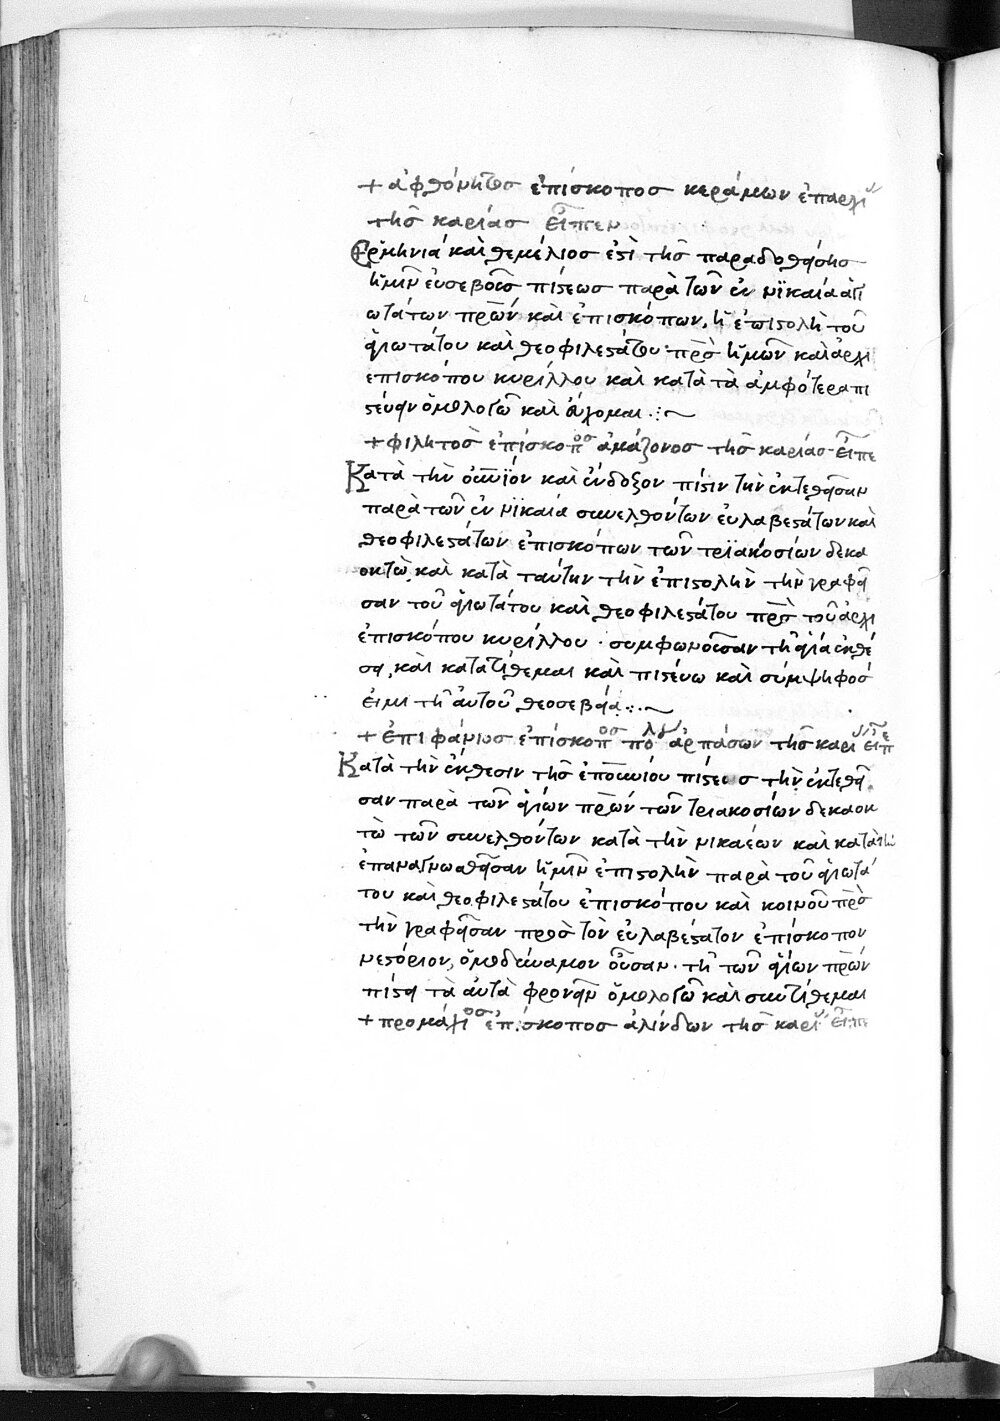 + ἀφθόνητος ἐπίσκοπος κεράμων ἐπαρχί
τῆς καρίας εἶπεν
Ἑρμηνιά καὶ θεμέλιος ἐστὶ τῆς παραδοθείσης
ἡμῖν εὐσεβοῦς πίστεως παρὰ τῶν ἐν νϊκαία ἁγι
ωτάτων πρῶν καὶ ἐπισκόπων, ἡ ἐπιστολὴ τοῦ
ἁγιωτάτου καὶ θεοφιλεστάτου πρς ἡμῶν καὶ ἀρχι
επισκόπου κυρίλλου καὶ κατὰ τὰ ἀμφότερα πι
στεύειν ὁμολογῶ καὶ εὔχομαι .:~
+ φιλητος ἐπίσκοπος ἀμάζονος τῆς καρίας εἶπε
Κατὰ τὴν ὁσϊόν καὶ ἔνδοξον πίστιν τὴν ἐκτεθεῖσαν
παρὰ τῶν ἐν νϊκαία συνελθόντων εὐλαβεστάτων καὶ
θεοφιλεστάτων ἐπισκόπων τῶν τρϊακοσίων δεκα
οκτὼ, καὶ κατὰ ταύτην τὴν ἐπιστολὴν τὴν γραφεῖ
σαν τοῦ ἁγιωτάτου καὶ θεοφιλεστάτου πρς τοῦ ἀρχι
ἐπισκόπου κυρίλλου · συμφωνοῦσαν τῆ ἁγία ἐκθέ
σει, καὶ κατατίθεμαι καὶ πιστεύω καὶ σύμψηφός
εἰμι τῆ αὐτοῦ θεοσεβεία .:.~
+ ἐπιφάνιος ἐπίσκοπος πό ἀρπάσων τῆς καρί εἶπε
Κατὰ τὴν ἔκθεσιν τῆς πίστεως τὴν ἐκτεθεῖ
σαν παρὰ τῶν ἁγίων πρων τῶν τριακοσίων δεκαοκ
τὼ τῶν συνελθόντων κατὰ τὴν νικαέων καὶ κατὰ τὴν
ἐπαναγνωσθεῖσαν ἡμῖν ἐπιστολὴν παρὰ τοῦ ἁγιωτά
του καὶ θεοφιλεστάτου ἐπισκόπου καὶ κοινοῦ πρς
τὴν γραφεῖσαν πρὸς τὸν εὐλαβέστατον ἐπίσκοπον
νεστόριον, ὁμοδύναμον οὖσαν · τῆ τῶν ἁγίων πρων
πίστει τὰ αὐτὰ φρονεῖν ὁμολογῶ καὶ συντίθεμαι
+ προμάχιος ἐπίσκοπος ἀλίνδων τῆς καρί εἶπε